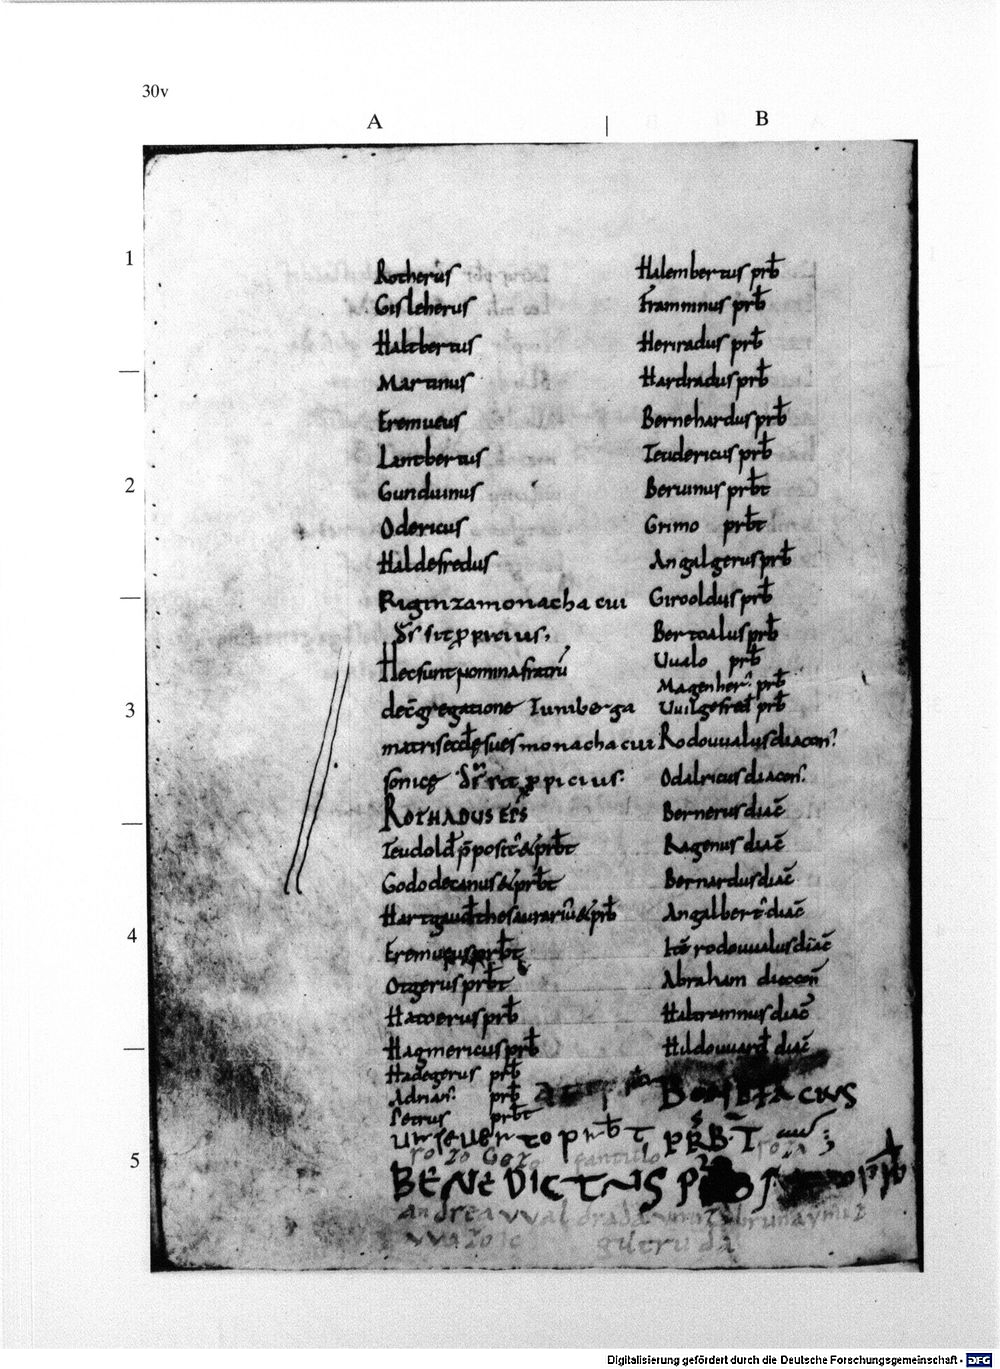 30v
A | B
1
2
3
4
5
Rotherus
Gisleherus
Haltbertus
Martinus
Eremueus
Lantbertus
Gunduinus
Odericus
Haldefredus
Riginza monacha cui
d̄s sit ꝓpicius.
Hec sunt nomina fratrū
de c̄gregatione Iumberga
matris ecclę sues monacha cui
sonicę d̄s sit ꝓpicius.
ROTHADUS EP̄S
Teudold p̄posit' & prƀt
Godo decanus & prƀt
Hartgaud thesaurariu' & prƀ
Eremueus prƀt
Otgerus prƀt
Hatoerus prƀ
Hagmericus prƀ
Hadegerus prƀ
Adrian' prƀ
Petrus prƀt
urseuerto prƀt
BENEDICTNS
Halembertus prƀ
Frammnus prƀ
Heriradus prƀ
Hardradus prƀ
Bernehardus prƀ
Teudericus prƀ
Beruinus prƀt
Grimo prƀt
Angalgerus prƀ
Girooldus prƀ
Bertoalus prƀ
Uualo prƀ
Magenher' prƀ
Uuilgefred prƀ
Rodouualus diacon'
Odalricus diacon'
Bernerus diac̄
Ragenus diac̄
Bernardus diac̄
Angalbert' diac̄
Itē rodouualus diac̄
Abraham diacon̄
Haltramnus diac̄
Hildouuard diac̄
BONIFACIUS
PRB·T
giltruda
Digitalisierung gefördert durch die Deutsche Forschungsgemeinschaft - DFG